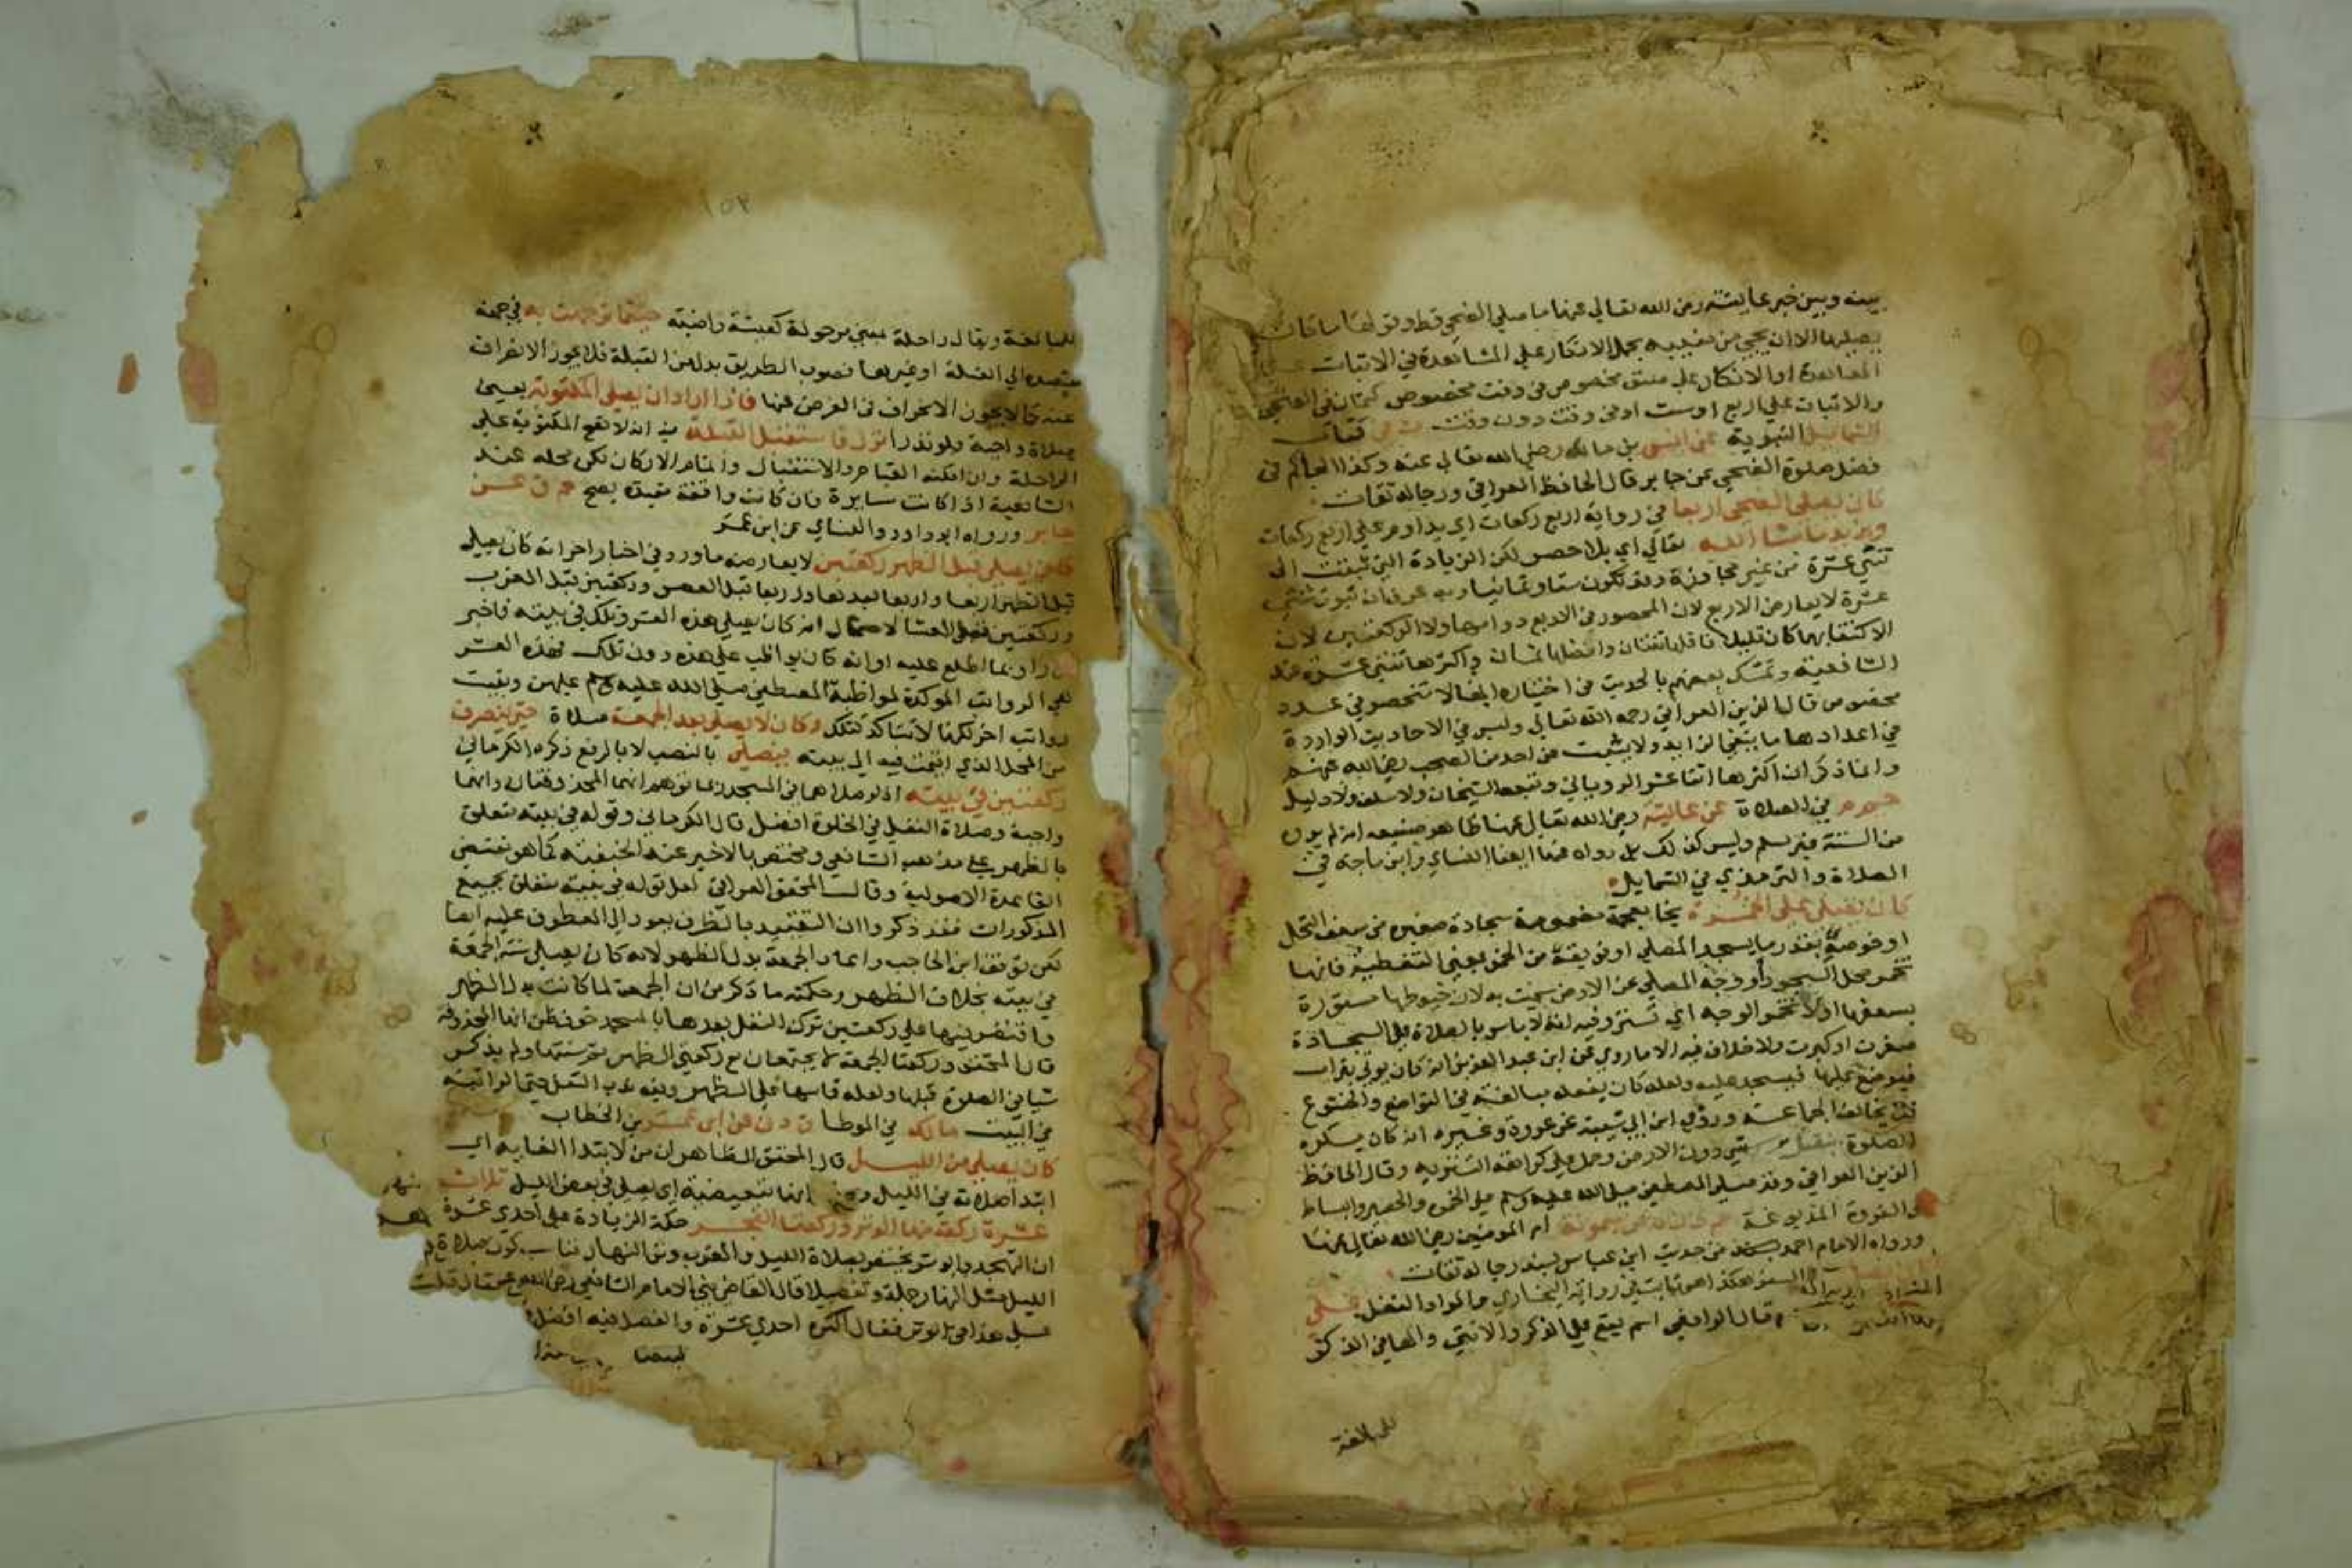 بينه وبين خبر عايشة رضي الله تعالى عنها ما صلى الضحى قط وقولها ما كان
يصليها الا ان يجي من مغيبه بحمل الانكار على المشاهدة في الاثبات على
المعاهدة او الانكار على صنق مخصوص في وقت مخصوص كثمان في الضحى
والاثبات على اربع او ست او في وقت دون وقت ت في كتاب
الشمايل النبوية عن انس بن مالك رضي الله تعالى عنه وكذا الحاكم في
فضل صلوة الضحى عن جابر قال الحافظ العراقي ورجاله ثقات
كان يصلي الضحى اربعا في رواية اربع ركعات اي يداوم على اربع ركعات
ويزيد ما شا الله تعالى اي بلا حصر لكن الزيادة التي ثبتت الى
ثنتي عشرة من غير مجاوزة وقد تكون ستا وثمانيا وبه عرف ان ثبوت ثنتي
عشرة لا يعارض الاربع لان المحصور في الاربع دوامها ولا الركعتين لان
الاكتفا بهما كان قليلا فاقلها ثنتان وافضلها ثمان واكثرها ثنتي عشرة عند
الشافعية وتمسك بعضهم بالحديث في اختياره انها لا تنحصر في عدد
مخصوص قال الزين العراقي رحمه الله تعالى وليس في الاحاديث الواردة
في اعدادها ما ينفي الزايد ولا يثبت عن احد من الصحب رضي الله عنهم
وانما ذكر ان اكثرها اثنا عشر الروياني وتبعه الشيخان ولا سلف ولا دليل
حم م في الصلاة عن عايشة رضي الله تعالى عنها ظاهر صنيعه انه لم يروه
من الستة غير مسلم وليس كذلك بل رواه عنها ايضا النساي وابن ماجه في
الصلاة والترمذي في الشمايل
كان يصلي على الخمرة بخا معجمة مضمومة سجادة صغيره من سعف النخل
او خوصه بقدر ما يسجد المصلي او فويقه من الخمر بمعنى التغطية فانها
تخمر محل السجود او وجه المصلي عن الارض سميت به لان خيوطها مستورة
بسعفها او لانها تخمر الوجه اي تستره وفيه انه لا باس بالصلاة على السجادة
صغرت او كبرت ولا خلاف فيه الا ما روي عن ابن عبد العزيز انه كان يوتى بتراب
فيوضع عليها فيسجد عليه ولعله كان يفعله مبالغة في التواضع والخشوع
فلا يخالف الجماعة وروى ابن ابي شيبة عن عروة وغيره انه كان يكره
الصلوة على شي دون الارض وحمل على كراهة التنزيه وقال الحافظ
الزين العراقي وقد صلى المصطفى صلى الله عليه وسلم على الخمرة والحصير والبساط
والفروة المدبوغة ميمونة ام المومنين رضي الله تعالى عنها
ورواه الامام احمد من حديث ابن عباس بسند رجاله ثقات
السفر هكذا هو ثابت في رواية البخاري حالمراد النفل على
قال الرافعي اسم يقع على الذكر والانثى والها في الذكر
للمبالغة
١٥٣
للمبالغة ويقال راحلة بمعنى مرحولة كعيشة راضية حيثما توجهت به في جهة
مقصده الى القبلة او غيرها فصوب الطريق بدل من القبلة فلا يجوز الانحراف
عنه كما لا يجوز الانحراف في الفرض عنها فاذا اراد ان يصلي المكتوبة يعني
صلاة واجبة ولو نذرا نزل فاستقبل القبلة فيه انه لا تقع المكتوبة على
الراحلة وان امكنه القيام والاستقبال واتمام الاركان لكن محله عند
الشافعية اذا كانت سايرة فان كانت واقفة مقيدة يصح حم ق عن
جابر ورواه ابو داود والنساي عن ابن عمر
كان يصلي قبل الظهر ركعتين لا يعارضه ما ورد في اخبار اخر انه كان يصلي
قبل الظهر اربعا واربعا بعدها واربعا قبل العصر وركعتين قبل المغرب
وركعتين قبل العشا لاحتمال انه كان يصلي هذه العشر وتلك في بيته فاخبر
كل راو بما اطلع عليه او انه كان يواظب على هذه دون تلك فهذه العشر
هي الرواتب الموكدة لمواظبة المصطفى صلى الله عليه وسلم عليهن وبقيت
رواتب اخر لكنها لا تتاكد كتلك وكان لا يصلي بعد الجمعة صلاة حتى ينصرف
من المحل الذي اقيمت فيه الى بيته فيصلي بالنصب لا بالرفع ذكره الكرماني
ركعتين في بيته اذ لو صلاهما في المسجد ربما توهم انهما المحذوفتان وانهما
واجبة وصلاة النفل في الخلوة افضل قال الكرماني وقوله في بيته متعلق
بالظهر على مذهب الشافعي ومختص بالاخير عند الحنفية كما هو مقتضى
القاعدة الاصولية وقال المحقق العراقي لعل قوله في بيته متعلق بجميع
المذكورات فقد ذكروا ان التقييد بالظرف يعود الى المعطوف عليه ايضا
لكن توقف ابن الحاجب واعاد الجمعة بدل الظهر لانه كان يصلي سنة الجمعة
في بيته بخلاف الظهر وحكمته ما ذكر من ان الجمعة لما كانت بدل الظهر
واقتصر فيها على ركعتين ترك النفل بعدها بالمسجد خوف ظن انها المحذوفة
قال المحقق وركعتا الجمعة لا يجتمعان مع ركعتي الظهر ولم يذكر
شيا في الصلوة قبلها ولعله قاسها على الظهر وفيه ندب النفل حتى الراتبة
في البيت مالك في الموطا ق د ن عن ابن عمر بن الخطاب
كان يصلي من الليل قال المحقق الظاهر ان من لابتدا الغاية اي
ابتدا صلاته في الليل انها تبعيضية اي يصلي في بعض الليل ثلاث
عشرة ركعة منها الوتر وركعتا الفجر حكمة الزيادة على احدى عشرة
ان التهجد والوتر يختص بصلاة الليل والمغرب وتر النهار فناسب كون صلاة
الليل مثل النهار جملة وتفصيلا قال القاضي بنى الامام الشافعي رضي الله عنه
على هذا في الوتر فقال اكثره احدى عشرة والفصل فيه افضل